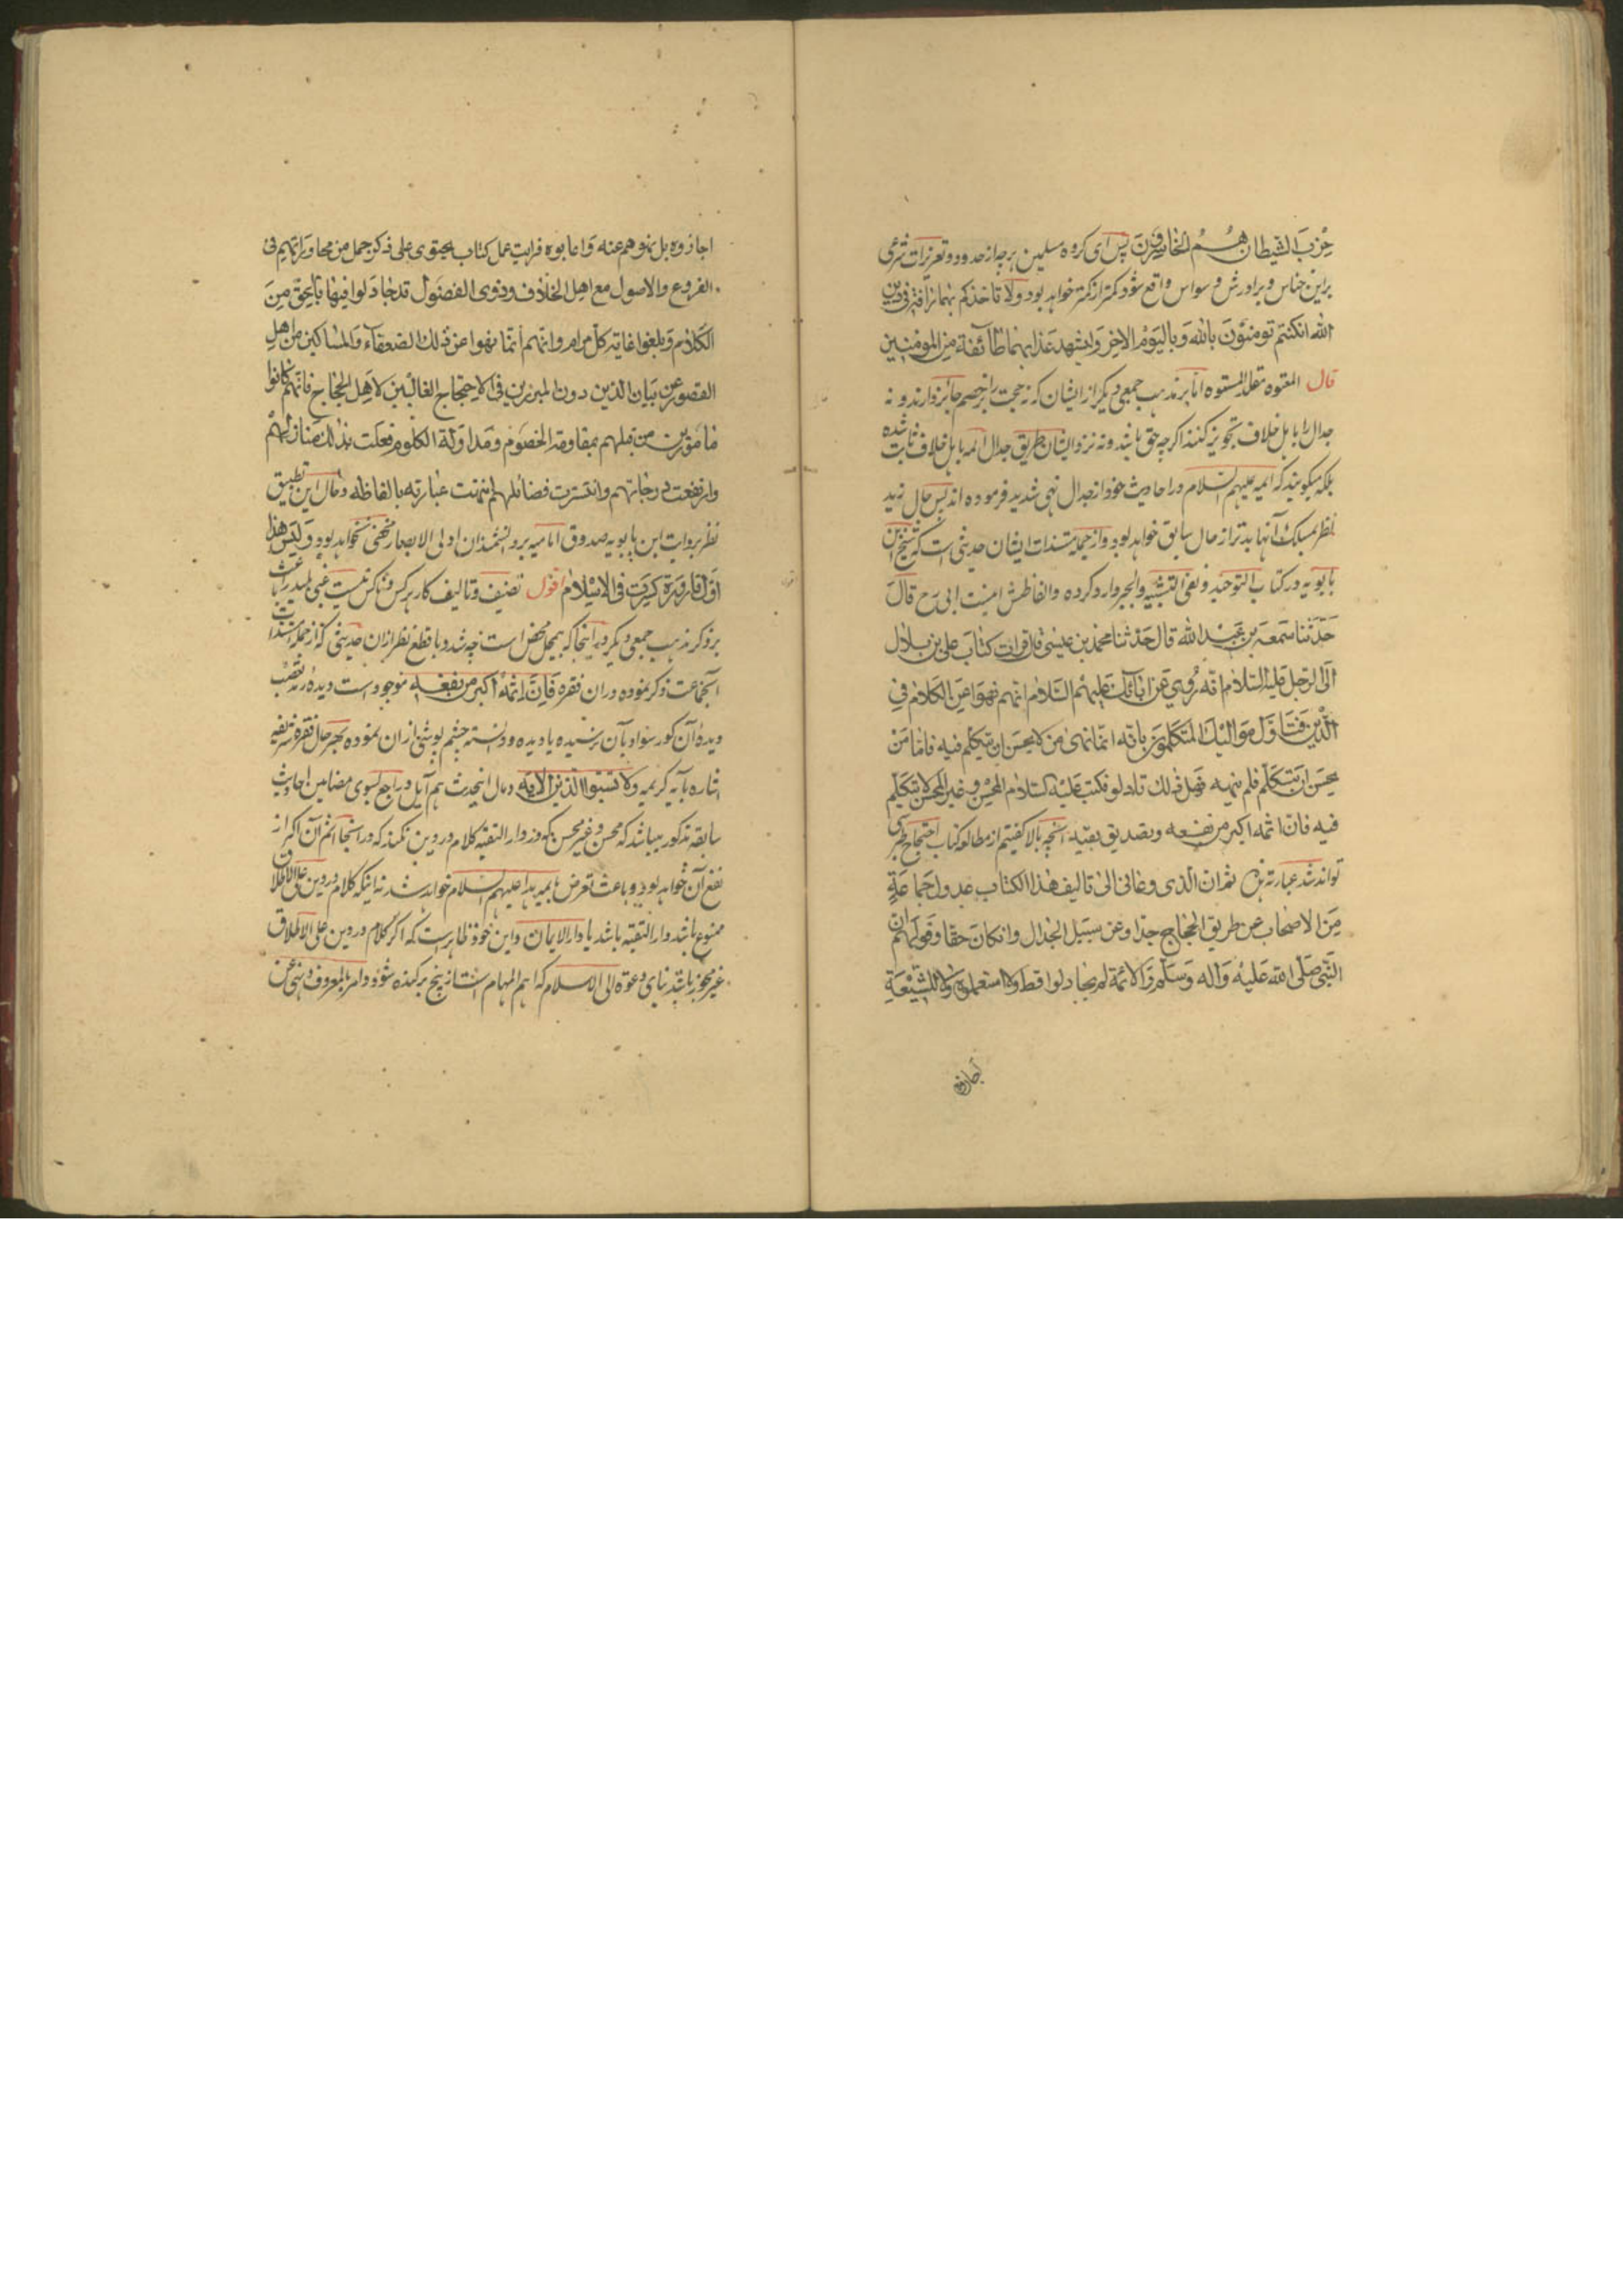 حِزْبَ الشیطان هُمُ الخاسِرُونَ پس ای کروه مسلمین هرچه از حدود و تعزیرات شرعی
براین خناس و برادرش وسواس واقع شود کمتر از کمتر خواهد بود ولا تاخذکم بهما رافة فی دین
الله انکنتم تومنوُنَ بالله وَبالیَوْمِ الاخِرِ وَلیشهد عَذابهما طائفة مِنَ المومنین
قال المعتوه مقلد المستوه اما بر مذهب جمعی دیگر از ایشان که نه حجت را بر خصم جائز دارند و نه
جدال را با اهل خلاف تجویز کنند اکرچه حق باشد و نه نزد ایشان طریق جدال ائمه با اهل خلاف ثابت شده
بلکه میکویند که ائمه علیهم السلام در احادیث خود از جدال نهی شدید فرموده اند پس حال زید
نظر بمسلک آنها بدتر از حال سابق خواهد بود و از جمله مستندات ایشان حدیثی است که شیخ ابن
بابویه در کتاب التوحید و نفی التشبیه والجبر وارد کرده و الفاظش اینست ابی رح قالَ
حَدّثنا سَمعد بن عَبْد الله قال حَدّثنا محمّد بن عیسٰی قال قرات کتابَ علی بن بلال
الَی الرّجل عَلیْهِ السّلام انّه رُوِی عَن ابآئک عَلیهمُ السّلام انّهم نهوَا عَنِ الکلام فِی
الدّین فَتاوّل مَوالیکَ المتَکلمُونَ بانّه انّما نهی مَن لا یحسَن ان یتکلم فیه فامّا مَنْ
یحسَن ان یَتکلم فلم ینهه فهَل ذلک کما تاولو فکتب عَلیْهِ السّلام المحْسِن وَ غیر المحْسِن لا یَتکلم
فیه فانّ اثمه اکبر من نفعه و تصدیق بقیه آنچه بالا کفتیم از مطالعه کتاب احتجاج طبرسی
تواند شد عبارته هذه ثم ان الذی دعانی الیٰ تالیف هٰذا الکتاب عدول جَماعَةٍ
مِنَ الاصْحاب عن طریق الحجاج جدّا وعَن سبَیل الجدال وانکانَ حقّا وقولهم انّ
النّبی صلّی الله عَلیْه وَآله وَسَلّم وَالائمة لم یجادلوا قط ولا استعملوه ولا للشیعَةِ
اجازوه
اجازوه بل نهوهم عنه وَ عابوه فرایت عمل کتاب یحتوی علی ذکر جمل من محاوراتهم فی
الفروع والاصول مع اهل الخلاف وذوی الفضول قد جادَلوا فیها بالحقّ مِنَ
الکَلام وَبلغوا غایة کلّ مرام وانّهم انّما نهوا عن ذلک الضعفآء وَالمساکین من اهلِ
القصور عن بَیان الدّین دون المبرزین فی الاحتجاج الغالبین لاهل الحجاج فانّهم کانوا
مامورین من قبلهم بمقاومة الخصُوم ومَداوَلة الکلوم فعلت بذلک منازلهم
وارتفعت درجاتهم وانتشرت فضائلهم انتهت عبارته بالفاظه و حال این تطبیق
نظر بروایت ابن بابویه صدوق امامیه بر دانشمندان اولی الابصار مخفی نخواهد بود وَلیسَ هٰذا
اوّل قارورة کسرَت فی الاسْلام اقول تصنیف و تالیف کار هر کس و ناکس نیست غبی بلید را باعث
بر ذکر مذهب جمعی دیگر در اینجا که بیمحل محض است چه شد و با قطع نظر از ان حدیثی که از جمله مستندات
آنجماعت ذکر نموده در ان فقره فَانّ اثمه اکبر من نفعه موجود است دیده رمد تعصّب
دیدهٔ آن کور سواد بآن نرسیده یا دیده و دانسته چشم پوشی از ان نموده بهر حال فقره شریفه
اشاره بآیه کریمه ولا تَسُبّوا الّذین الآیه و مال اینحدیث هم آیل و راجع بسوی مضامین احادیث
سابقه مذکور میباشد که محسن و غیر محسن که در دار التقیه کلام در دین نکنند که در اینجا اثم آن اکبر از
نفع آن خواهد بود و باعث تعرض بایمه هدا علیهم السلام خواهد شد نه اینکه کلام در دین علی الاطلاق
ممنوع باشد دار التقیه باشد یا دار الایمان و این خود ظاهر است که اکر کلام در دین علی الاطلاق
غیر مجوز باشد بنای دعوة الی الاسلام که اهم المهام است از بیخ برکنده شود و امر بالمعروف و نهی عن